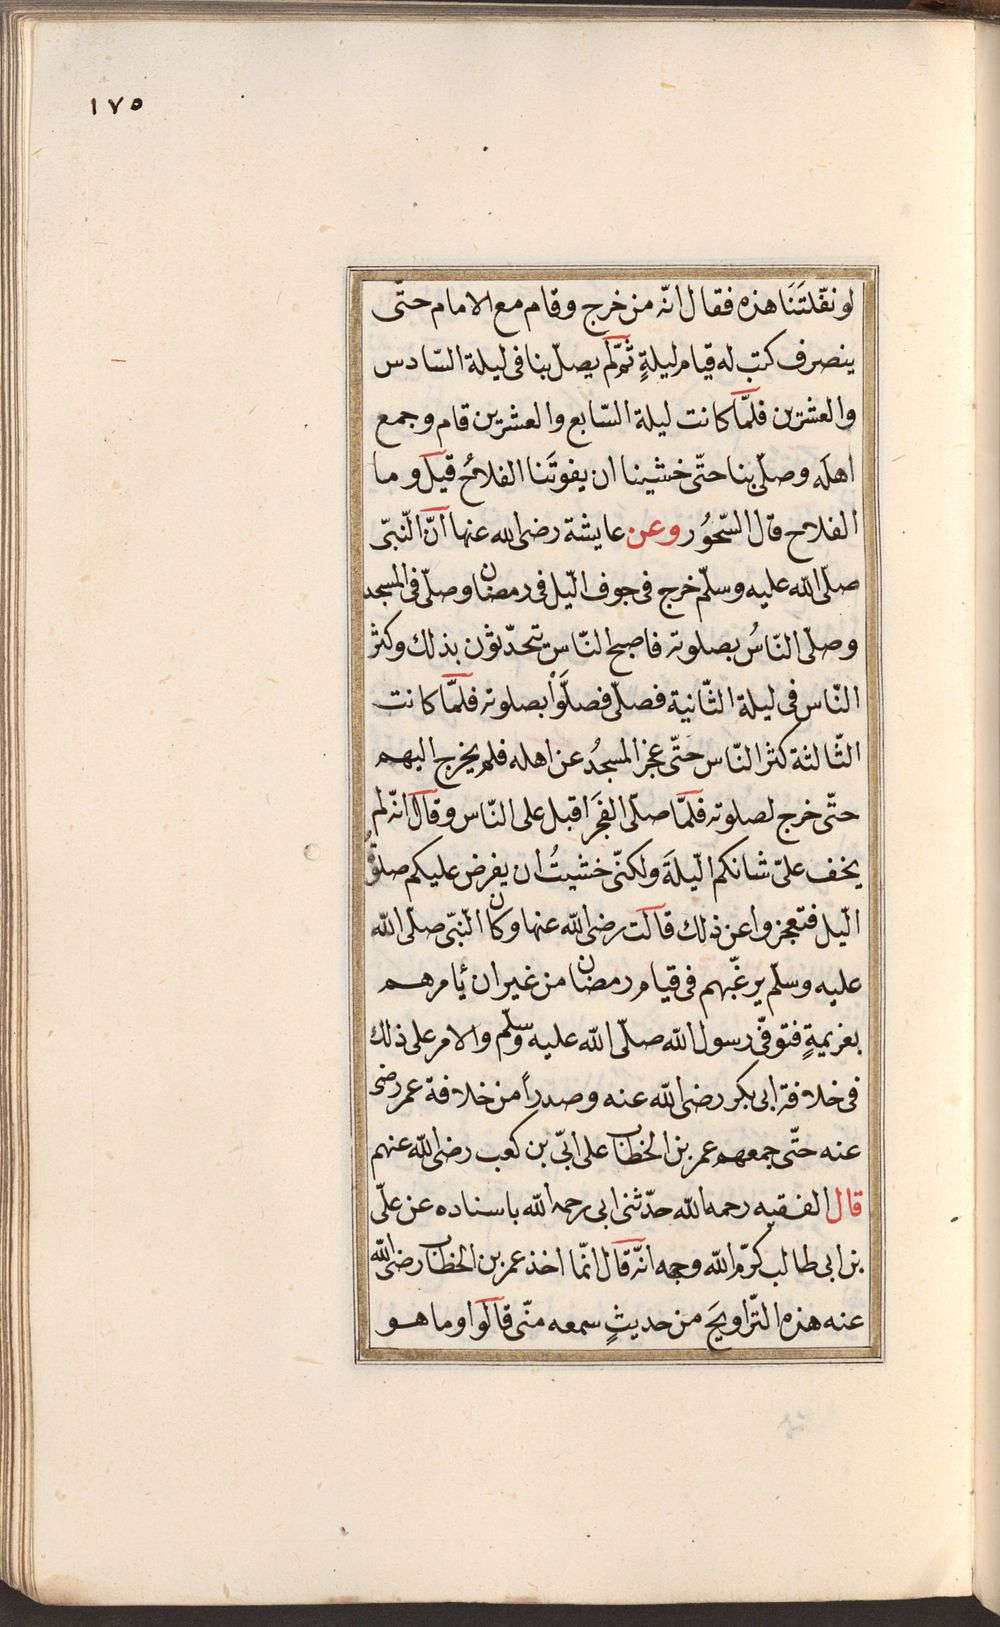 ١٧٥
لو نفّلتَنَا هذه فقال انّه من خرج وقام مع الامام حتّى
ينصرف كتب له قيام ليلةٍ ثمّ لم يصلّ بنا فى ليلة السّادس
والعشرين فلمّا كانت ليلة السّابع والعشرين قام وجمع
اهلَه وصلّى بنا حتّى خشينا ان يفوتَنا الفلاحُ قيل وما
الفلاح قال السّحوُر وعن عايشة رضى الله عنها انّ النّبىّ
صلّى الله عليه وسلّم خرج فى جوف الّيل فى رمضان وصلّى فى المسجد
وصلّى النّاسُ بصلوته فاصبح النّاس يتحدّثون بذلك وكثر
النّاس فى ليلة الثّانية فصلّى فصلَّوْا بصلوته فلمّا كانت
الثّالثة كثر النّاس حتّى عجز المسجدُ عن اهله فلم يخرج اليهم
حتّى خرج لصلوته فلمّا صلّى الفجَر اقبل على النّاس وقال انّه لم
يخف علىّ شانكم الّيلةَ ولكنّى خشيتُ ان يفرض عليكم صلوةُ
الّيل فتعجزوا عن ذلك قالت رضى الله عنها وكان النّبىّ صلّى الله
عليه وسلّم يرغّبهم فى قيام رمضان من غير ان يأمرهم
بعزيمةٍ فتوفّى رسول الله صلّى الله عليه وسلّم والامر على ذلك
فى خلافة ابى بكر رضى الله عنه وصدراً من خلافة عمر رضى
عنه حتّى جمعهم عمر بن الخطاب على ابّى بن كعب رضى الله عنهم
قال الفقيه رحمه الله حدّثنى ابى رحمه الله باسناده عن علىّ
بن ابى طالب كرّم الله وجهه انّه قال انّما اخذ عمر بن الخطاب رضى الله
عنه هذه التّراويحَ من حديثٍ سمعه منّى قالوا وما هو